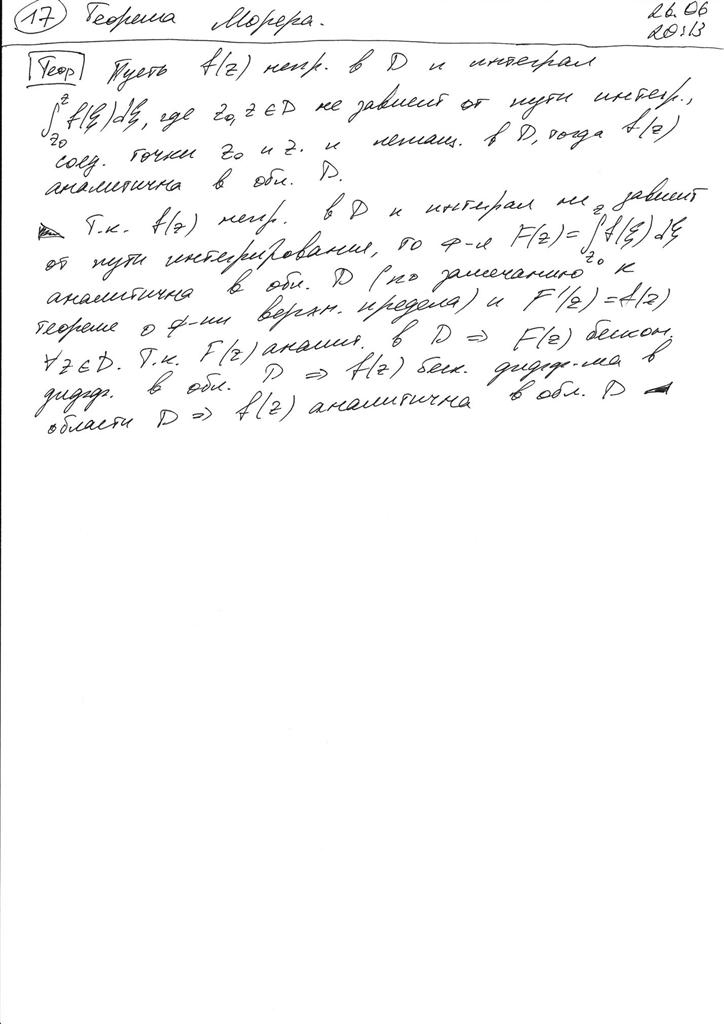 17 Теорема Морера. 26.06
2013
Теор Пусть f(z) непр. в D и интеграл
∫_{z₀}^{z} f(ξ)dξ, где z₀, z ∈ D не зависит от пути интегр.,
соед. точки z₀ и z. и лежащ. в D, тогда f(z)
аналитична в обл. D.
Т.к. f(z) непр. в D и интеграл не зависит
от пути интегрирования, то ф-я F(z) = ∫_{z₀}^{z} f(ξ)dξ
аналитична в обл. D (по замечанию к
теореме о ф-ии верхн. предела) и F'(z) = f(z)
∀z∈D. Т.к. F(z) аналит. в D ⇒ F(z) бескон.
дифф. в обл. D ⇒ f(z) беск. дифф-ма в
области D ⇒ f(z) аналитична в обл. D